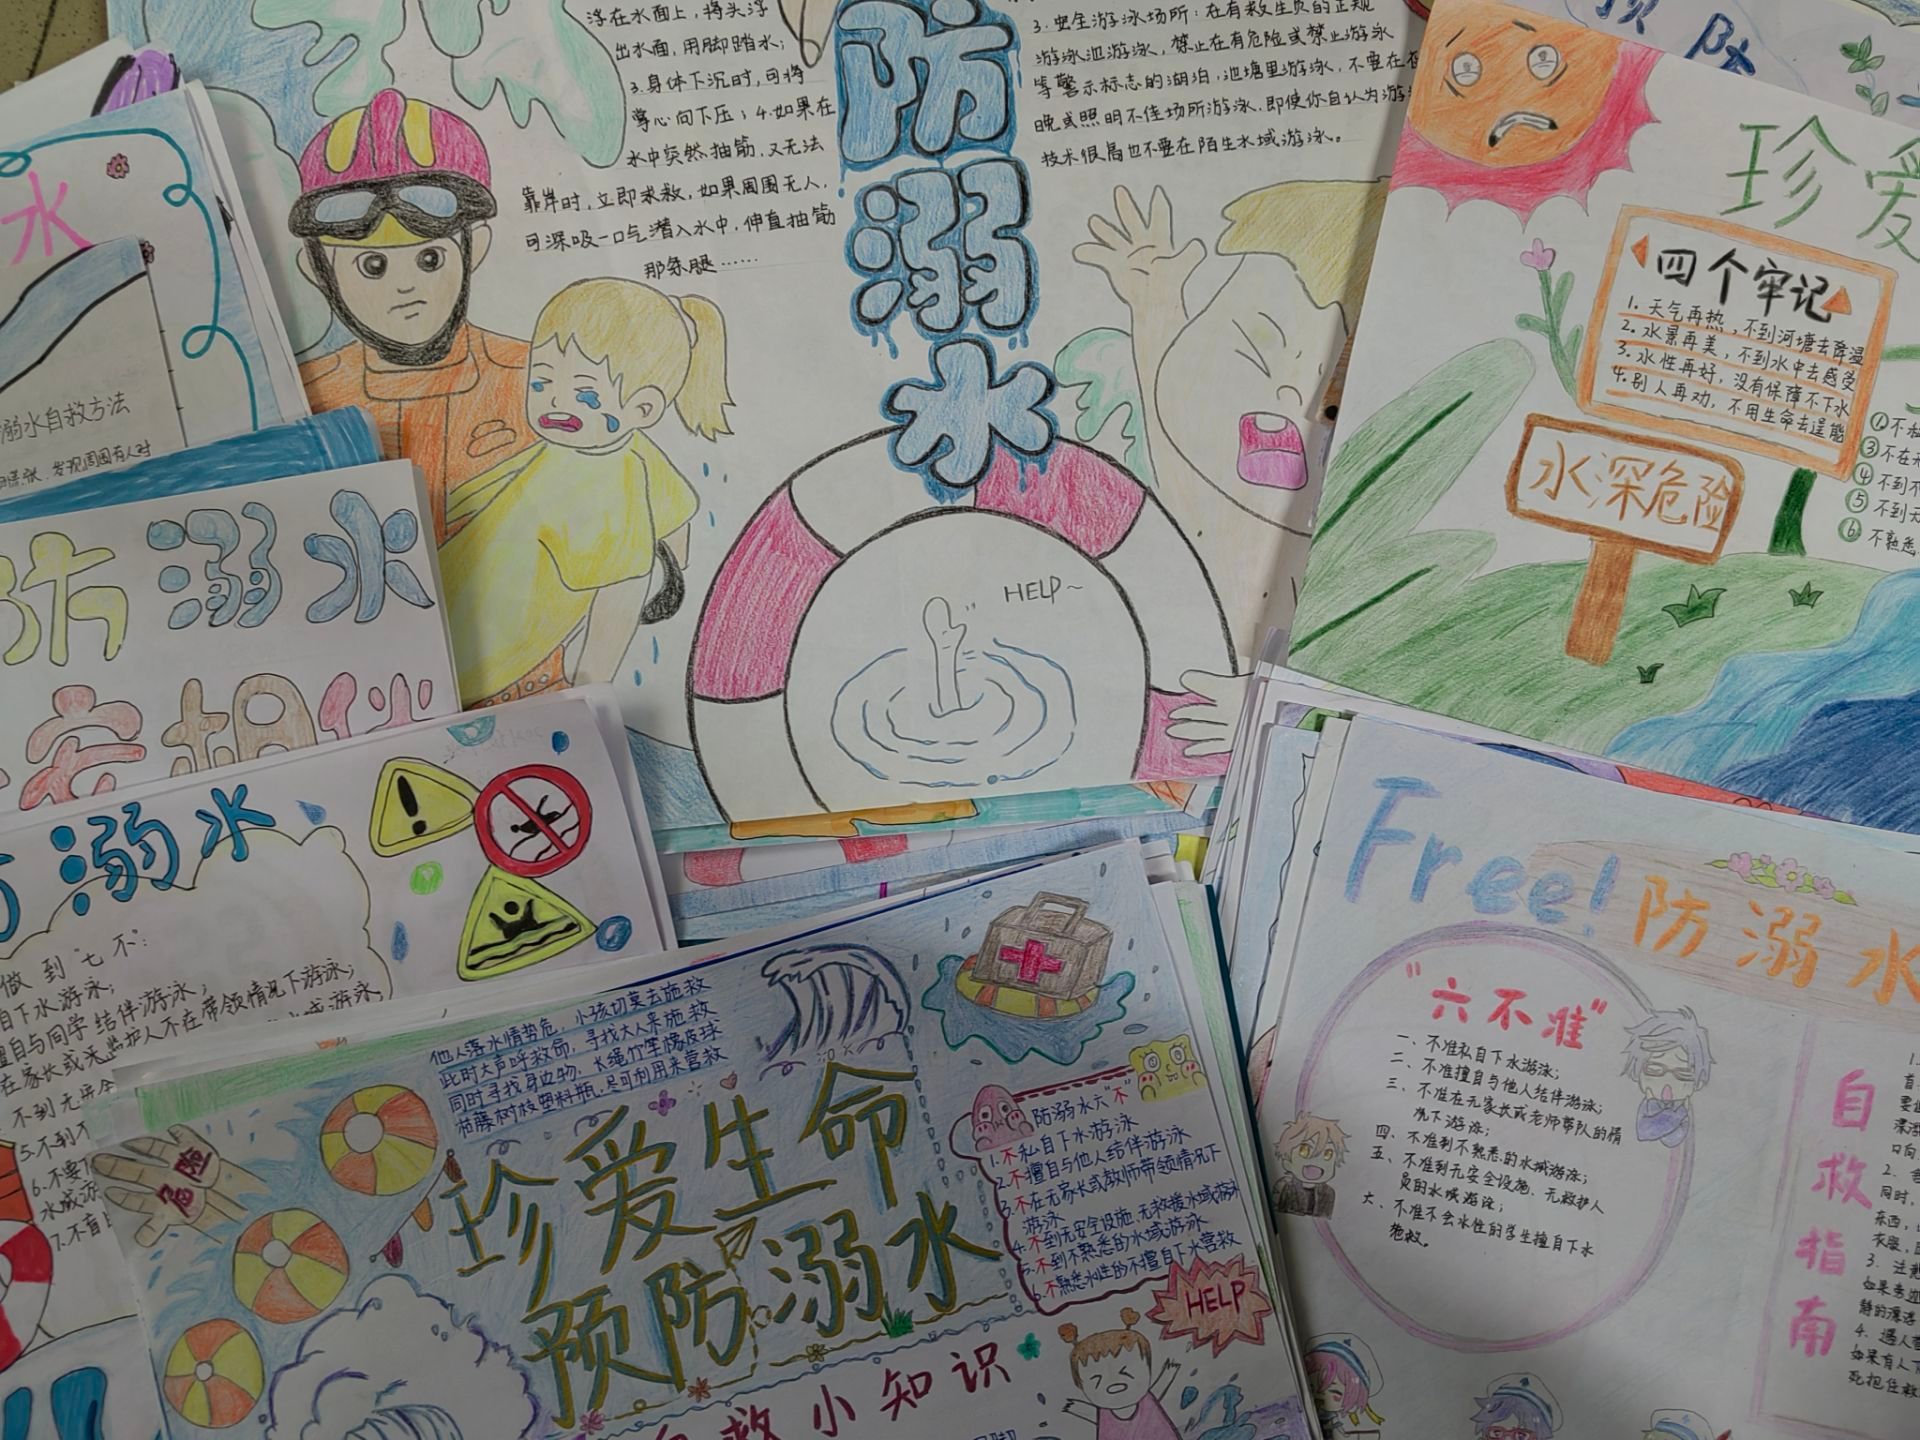 浮在水面上，将头浮
出水面，用脚踏水；
3.身体下沉时，可将
掌心向下压；4.如果在
水中突然抽筋，又无法
靠岸时，立即求救，如果周围无人，
可深吸一口气潜入水中，伸直抽筋
那条腿……
防
溺
水
3.安全游泳场所：在有救生员的正规
游泳池游泳，禁止在有危险或禁止游泳
等警示标志的湖泊，池塘里游泳，不要在
晚或照明不佳场所游泳，即使你自认为游
技术很高也不要在陌生水域游泳。
HELP~
预防
珍爱
四个牢记
1.天气再热，不到河塘去降温
2.水景再美，不到水中去感受
3.水性再好，没有保障不下水
4.别人再劝，不用生命去逞能
水深危险
③不在
④不到不
⑤不到
⑥不熟悉
水
溺水自救方法
发现周围有人时
防溺水
安相伴
溺水
做到"七不"：
自下水游泳；
擅自与同学结伴游泳；
在家长或无监护人不在带领情况下游泳；
不到无安全
5.不到不
6.不要
水域游
7.不盲目
危险
他人落水情势危，小孩切莫去施救
此时大声呼救命，寻找大人来施救
同时寻找身边物，长绳竹竿橡皮球
枯藤树枝塑料瓶，足可利用来营救
珍爱生命
预防溺水
防溺水六"不"
1.不私自下水游泳
2.不擅自与他人结伴游泳
3.不在无家长或教师带领情况下
游泳
4.不到无安全设施、无救援水域游泳
5.不到不熟悉的水域游泳
6.不熟悉水性的不擅自下水营救
HELP
自救小知识
Free!防溺水
"六不准"
一、不准私自下水游泳；
二、不准擅自与他人结伴游泳；
三、不准在无家长或老师带队的情
况下游泳；
四、不准到不熟悉的水域游泳；
五、不准到无安全设施、无救护人
员的水域游泳；
六、不准不会水性的学生擅自下水
施救。
自
救
指
南
1.
首
要
漂浮
口向
2.
同时，
东西，
衣服，
3.注意
如果旁边
静的漂浮
4.遇人
如果有人下
死抱住救